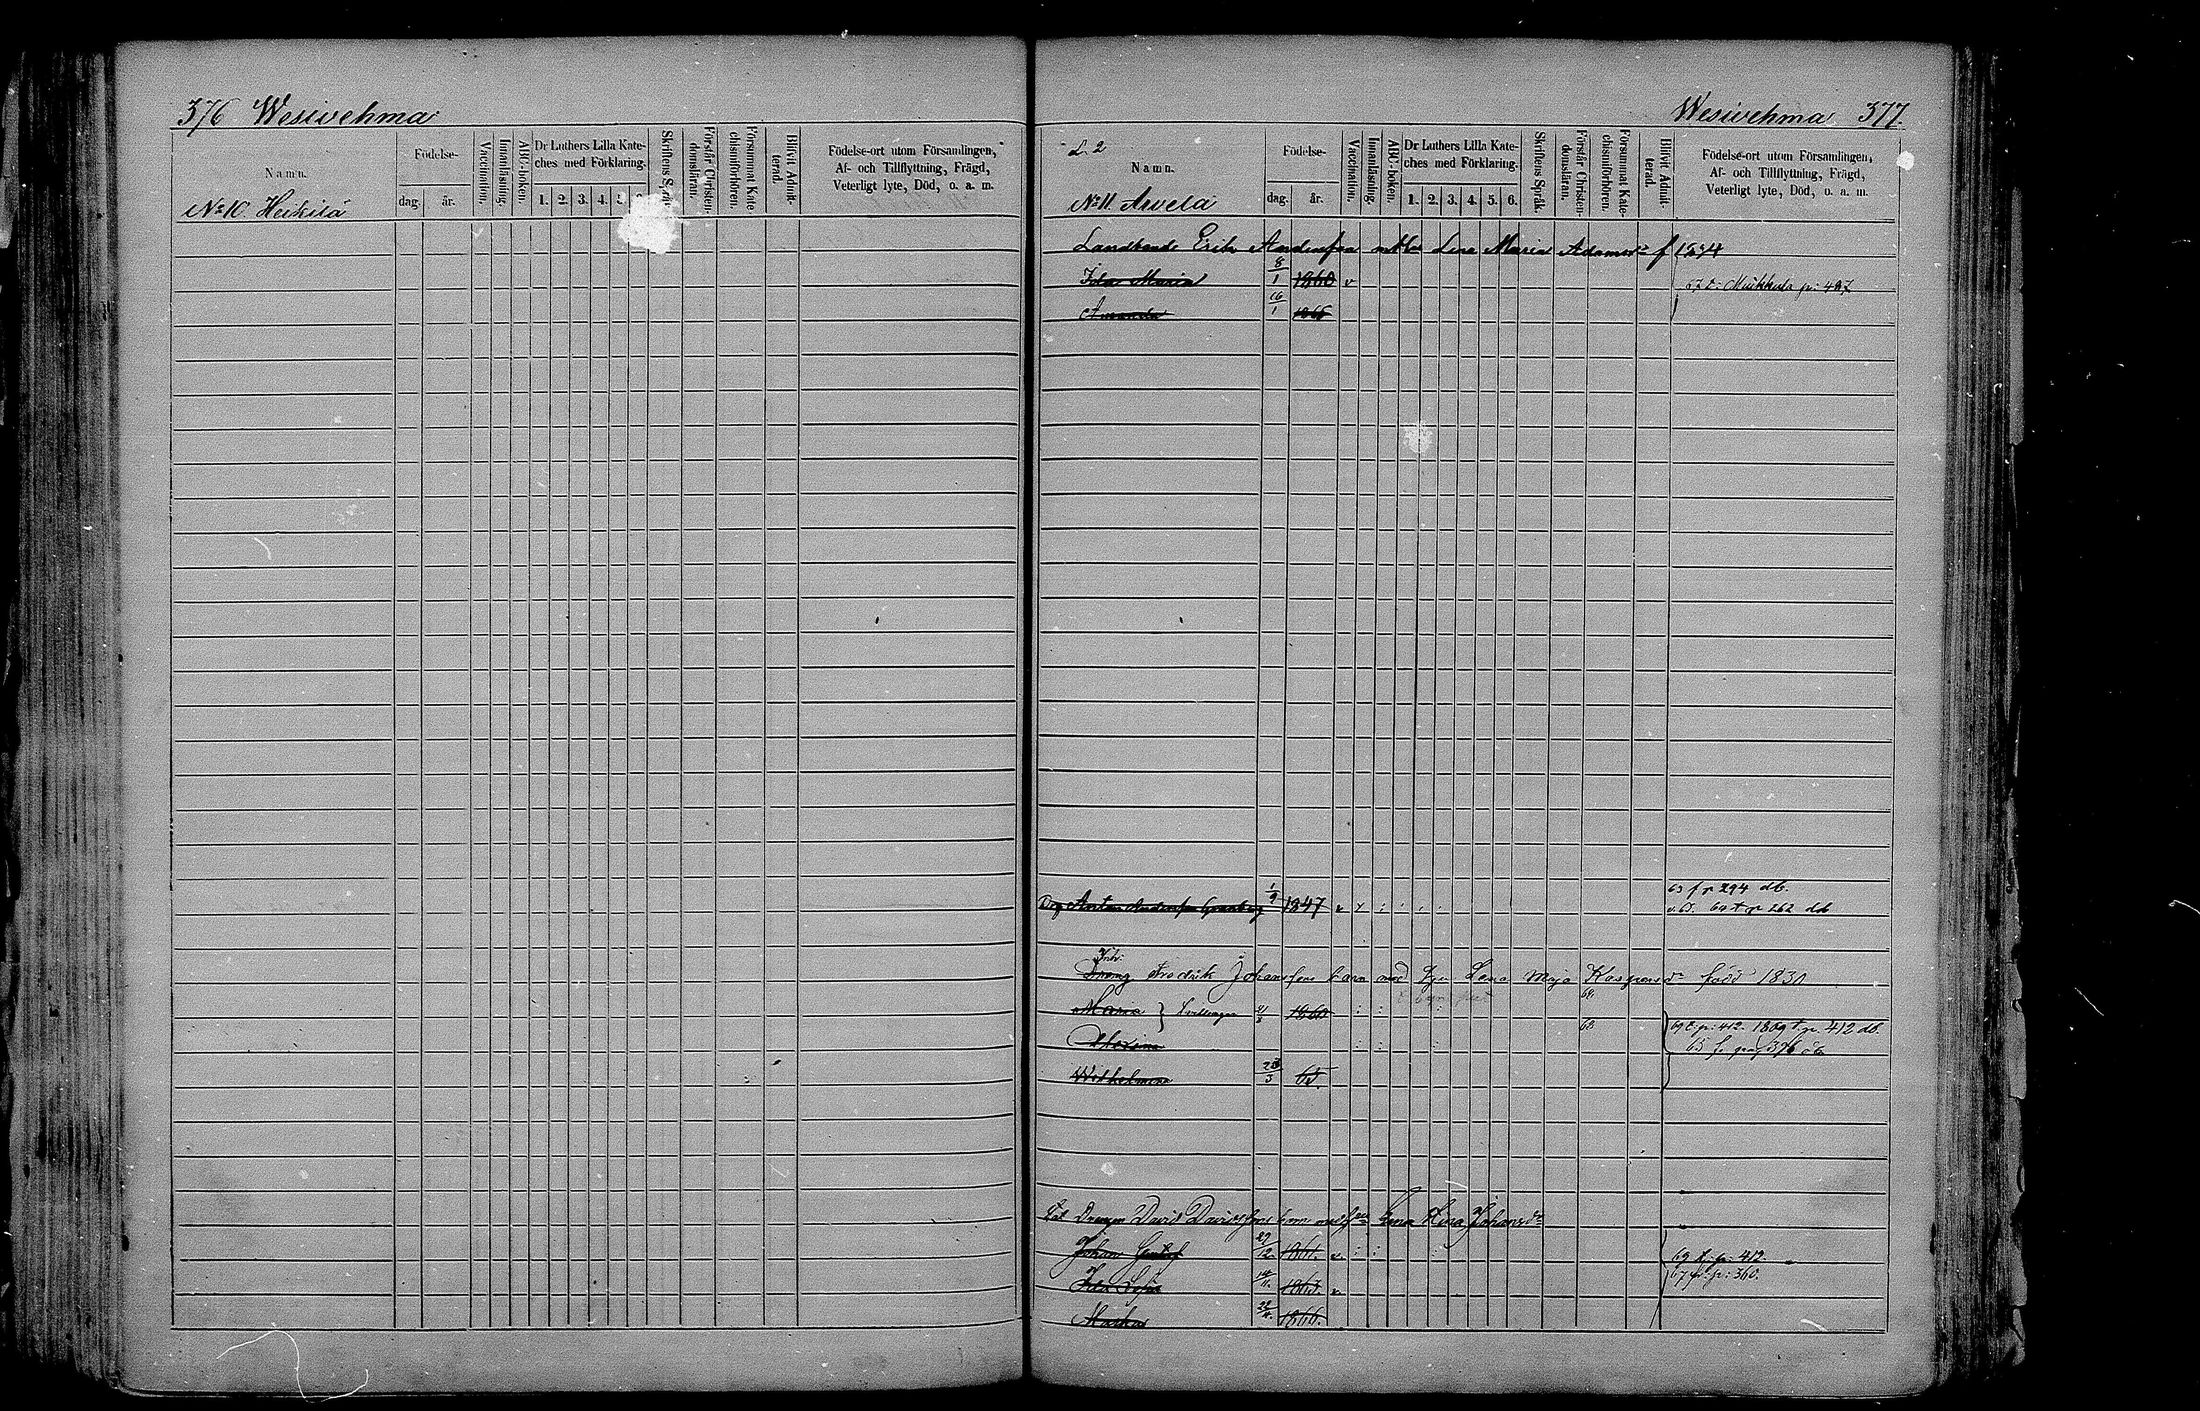 376 Wesivehma
Namn.
Födelse-
dag. år.
Vaccination.
Innanläsning.
ABC-boken.
Dr Luthers Lilla Kate-
ches med Förklaring.
1. 2. 3. 4. 5.
Skriftens Språk.
Förstår Christen-
domsläran.
Försummat Kate-
chismiförhören.
Blivit Admit-
terad.
Födelse-ort utom Församlingen,
Af- och Tillflyttning, Frägd,
Veterligt lyte, Död, o. a. m.
No 10 Heikilä
Wesivehma 377
L. 2
Namn.
Födelse-
dag. år.
Vaccination.
Innanläsning.
ABC-boken.
Dr Luthers Lilla Kate-
ches med Förklaring.
1. 2. 3. 4. 5. 6.
Skriftens Språk.
Förstår Christen-
domsläran.
Försummat Kate-
chismiförhören.
Blivit Admit-
terad.
Födelse-ort utom Församlingen,
Af- och Tillflyttning, Frägd,
Veterligt lyte, Död, o. a. m.
No 11 Arvela
Landbonde Erik Andersson Lena Maria Adamsdr f
Ida Maria 8/1 1860 v
p: 487
Amanda 16/1 1865
63 f p 294 db.
Drg Anton Andersson 1/9 1847 v
64 t p 262 db
Inh:
Dreng Fredrik Johanssons barn med Lena Maja Kaspersdr född 1830
Maria } Tvillingar 1860 68.
68. 69 t. p: 412. 1869 t. p. 412 db.
376
Wilhelmina 3 65.
Drengen David Davidssons med Lena Stina Johansdr
Johan Gustaf 27/12 1861. v
69 t. p: 412.
67 p: 360.
Ida Sofia 14/11 1863. v
1866.